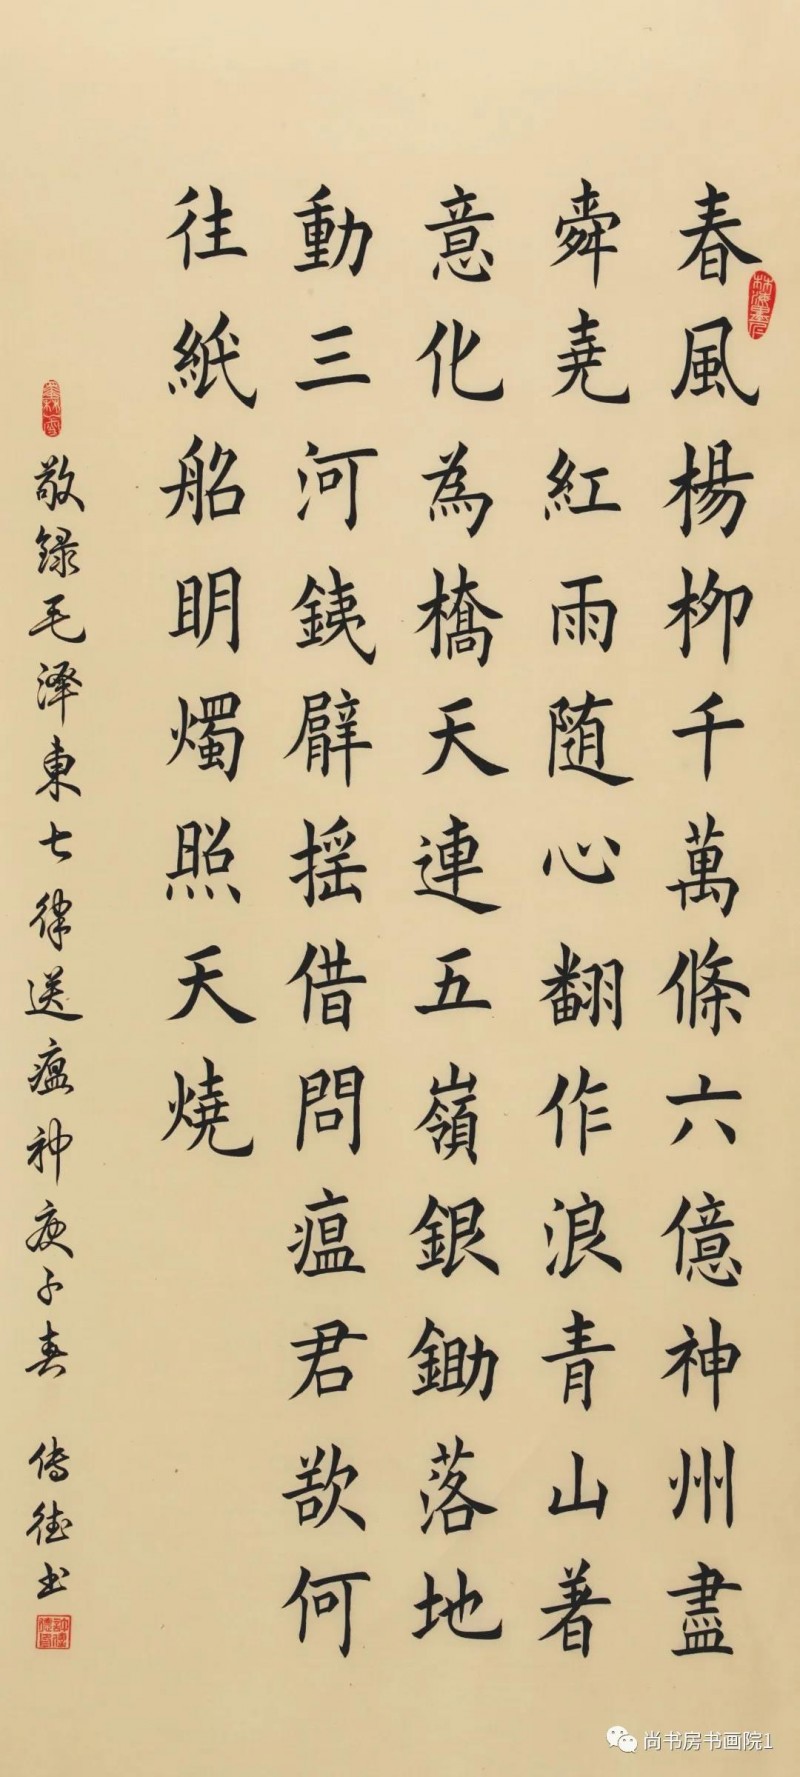 春風楊柳千萬條六億神州盡
舜堯紅雨随心翻作浪青山着
意化為橋天連五嶺銀鋤落地
動三河銕臂摇借問瘟君欲何
往紙船明燭照天燒
敬録毛泽東七律送瘟神庚子春 傳德书
尚书房书画院1